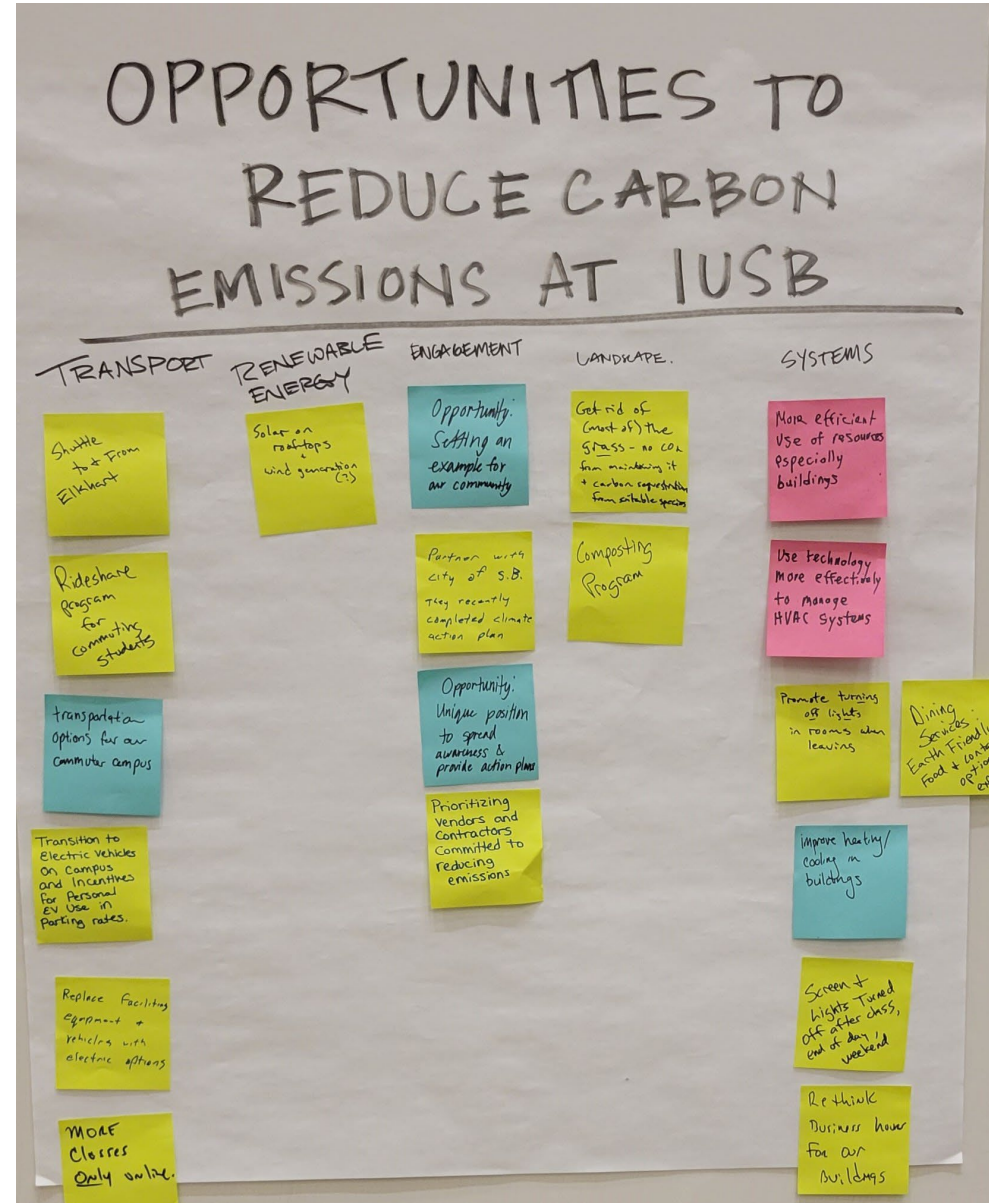 OPPORTUNITIES TO
REDUCE CARBON
EMISSIONS AT IUSB
TRANSPORT
Shuttle
to & From
Elkhart
Rideshare
program
for
commuting
students
transportation
options for our
commuter campus
Transition to
Electric Vehicles
On Campus
and Incentives
for Personal
EV Use in
Parking rates.
Replace Facilities
equipment +
vehicles with
electric options
MORE
Classes
Only online.
RENEWABLE
ENERGY
Solar on
rooftops
+
wind generation
(?)
ENGAGEMENT
Opportunity:
Setting an
example for
our community
Partner with
City of S.B.
They recently
completed climate
action plan
Opportunity:
Unique position
to spread
awareness &
provide action plans
Prioritizing
Vendors and
Contractors
Committed to
reducing
emissions
LANDSCAPE.
Get rid of
(most of) the
grass - no CO2
from maintaining it
+ carbon sequestration
from suitable species
Composting
Program
SYSTEMS
More efficient
Use of resources
especially
buildings
Use technology
More effectively
to manage
HVAC Systems
Promote turning
off lights
in rooms when
leaving
Dining
Services.
Earth Friendly
Food +
improve heating/
cooling in
buildings
Screen +
Lights Turned
off after class,
end of day,
weekend
Rethink
Business hours
For our
Buildings